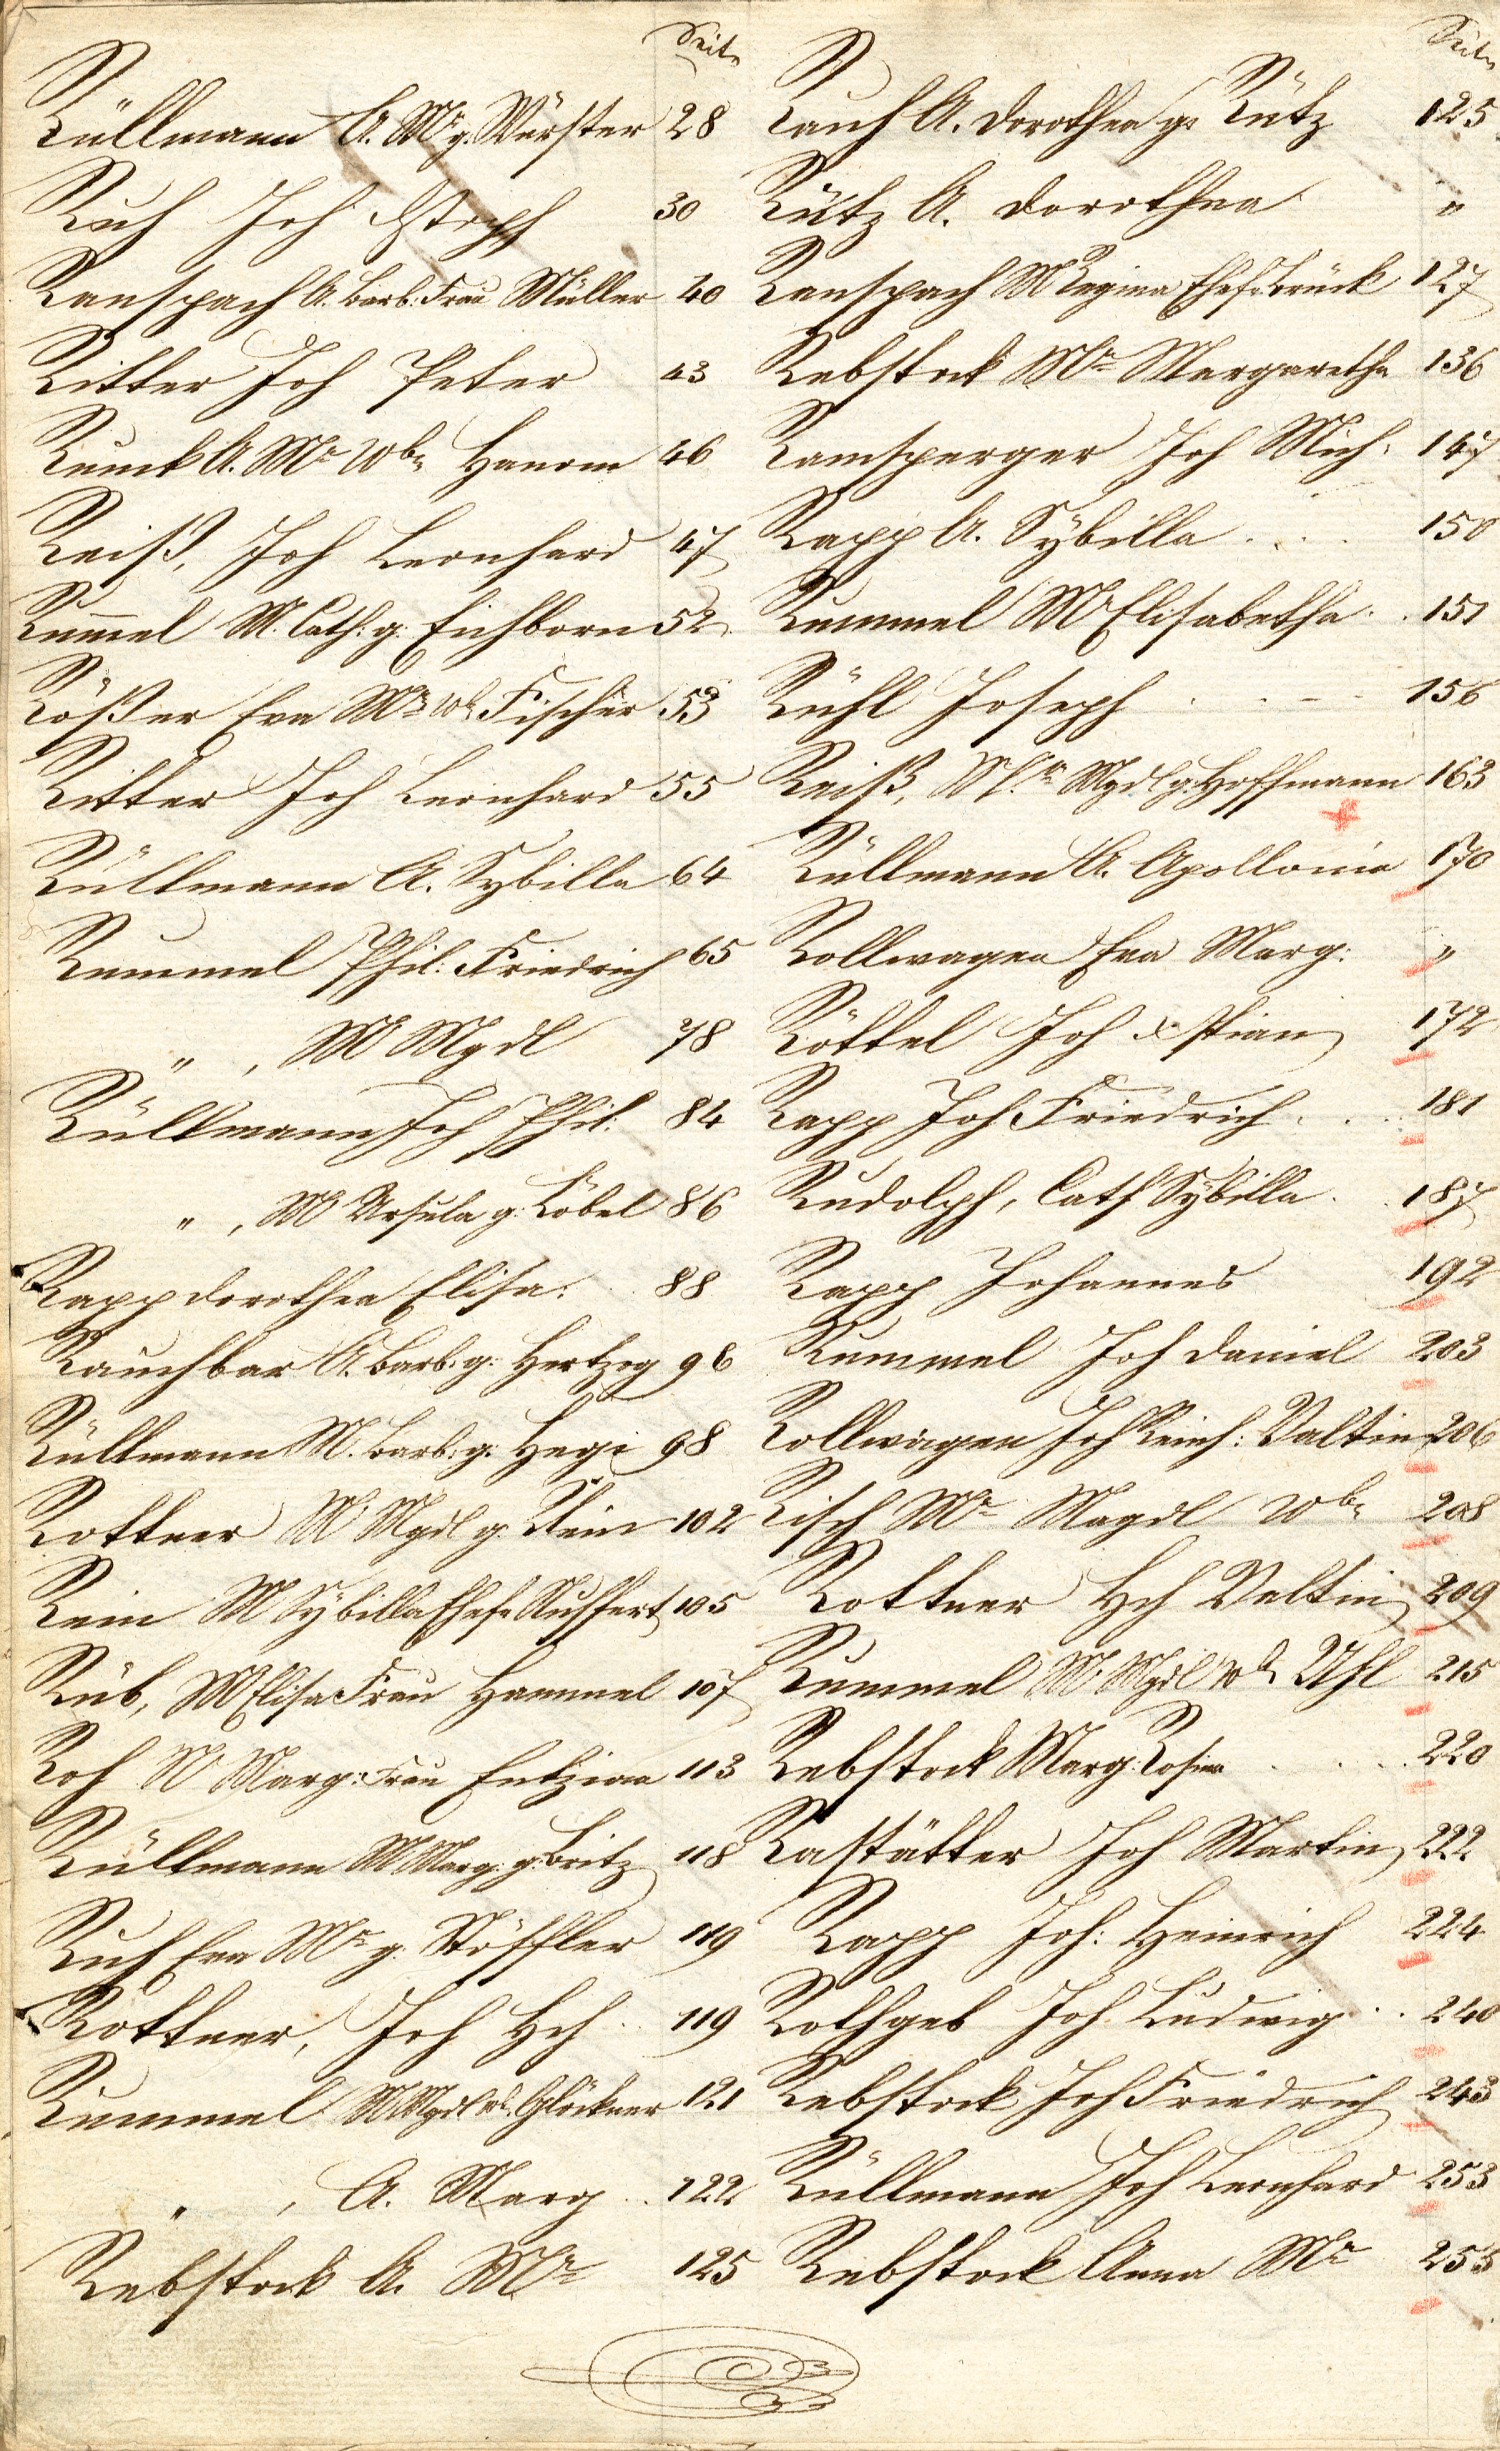 Seite
Rüllmann A. Mr g. Würster 28
Ruch Joh Xstoph 30
Ranspach A. Barb: Frau Müller 40
Ritter Joh Peter 43
Runck A. Mr Wbe Hanom 46
Reiß, Joh Leonhard 47
Rum̅el M. Cath: g: Eichborn 52
Rößer Eva Mr Wb Fischer 53
Ritter Joh Leonhard 55
Rüllmann A. Sybilla 64
Rummel Phil: Friedrich 65
" , M Mgdl 78
Rüllmann Joh Phil: 84
" , M Ursula g: Löbel 86
Rapp dorothea Elisa: 88
Rauchbar A. Barb: g: Hertzog 96
Rüllmann M. Barb: g: Hege 98
Rottner M Mgdl g. Klein 102
Rein M Sybilla Ehefr Seuffert 105
Rüb, M Elisa Frau Hammel 107
Roh M Marg: Frau Entzian 113
Rüllmann M Marg: g: Britz 118
Ruch Eva Mr g: Stöffler 119
Rottner, Joh Hch .. 119
Rummel M Mgdl Wb. Glöckner 121
" , A. Marg .. 122
Rebstock A. Mr 125
Seite
Rauch A. dorothea g: Rütz 125
Rütz A. dorothea "
Ranspach M Regina Ehefr. Brück 127
Rebstock Mr Margaretha 136
Ramsperger Joh Mich: 147
Rapp A. Sybilla . . . . 150
Rummel M Elisabetha . . 151
Rühl Joseph . . - - 156
Reiß, Mgdl g: Hoffmann 163
Rüllmann A. Apollonia 170
Rollwagen Eva Marg: "
Röttel Joh Xstian 172
Rapp Joh Friedrich . . . 181
Rudolph, Cath Sybilla . . 187
Rapp Johannes 192
Rummel Joh daniel 203
Rollwagen Joh Reinh: Valtin 206
Risch Mr Magdl Wbe 208
Rottner Hch Valtin 209
Rummel M Mgdl Wb Uhl 215
Rebstock Marg: Rosina . . . . 220
Rastätter Joh Martin 222
Rapp Joh: Heinrich 224
Rothgeb Joh Ludwig . . 240
Rebstock Joh Friedrich 243
Rüllmann Joh Leonhard 253
Rebstock Anna Mr 253